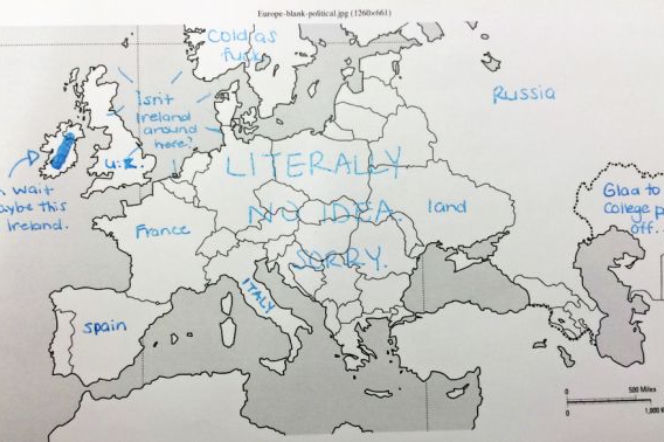 Europe-blank-political.jpg (1260×661)
Cold as
fuck
Isn't
Ireland
around
here?
Russia
U.K.
wait
maybe this
Ireland.
LITERALLY
NO IDEA.
SORRY.
land
France
ITALY
Spain
Glad to
College p
off.
0 500 Miles
0 1,000 K